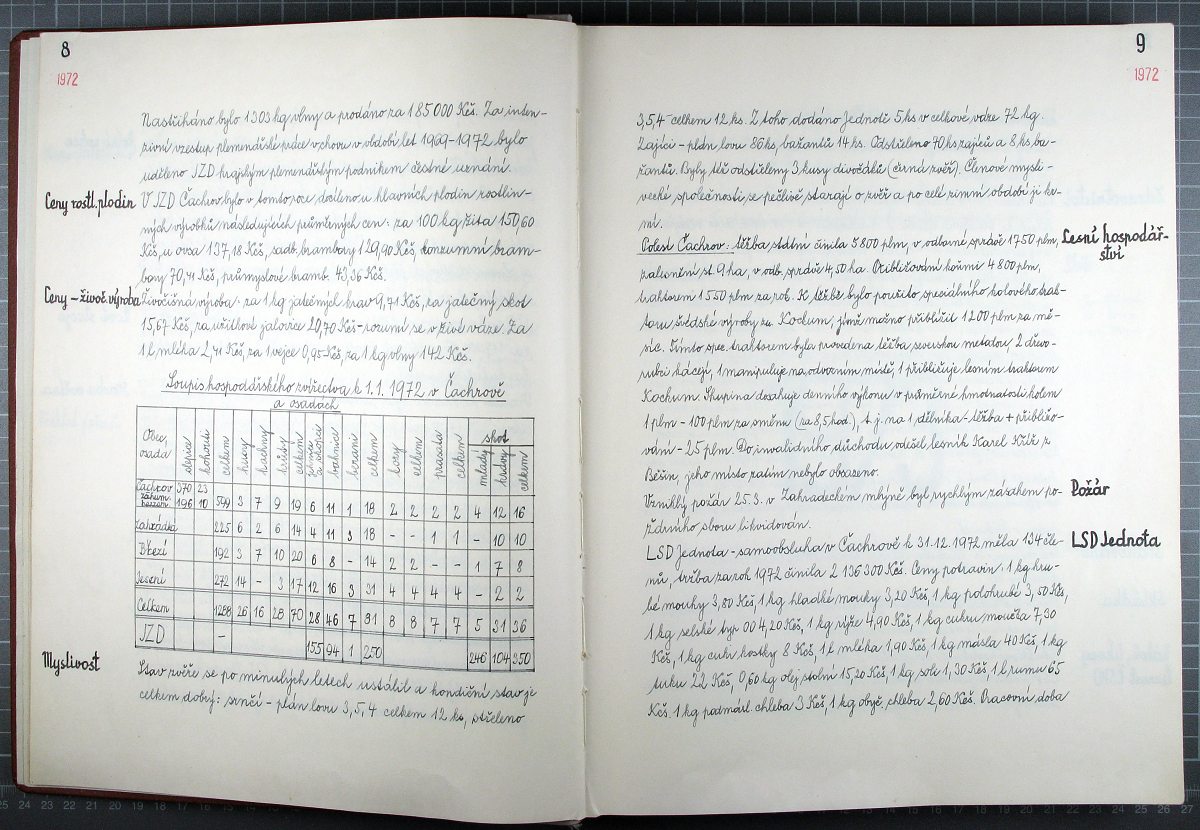 8
1972
Nastříháno bylo 1303 kg vlny a prodáno za 185000 Kčs. Za inten-
zivní vzestup plemenářské práce v chovu v období let 1969-1972 bylo
uděleno JZD krajským plemenářským podnikem čestné uznání.
Ceny rostl. plodin
V JZD Čachrov bylo v tomto roce docíleno u hlavních plodin rostlin-
ných výrobků následujících průměrných cen: za 100 kg žita 150,60
Kčs, u ovsa 137,18 Kčs, sadb. brambory 129,90 Kčs, konzumní bram-
bory 70,41 Kčs, průmyslové bramb. 43,36 Kčs.
Ceny – živoč. výroba
Živočišná výroba: za 1 kg jatečných krav 9,71 Kčs, za jatečný skot
15,67 Kčs, za užitkové jalovice 20,70 Kčs - rozumí se v živé váze. Za
1 l mléka 2,41 Kčs, za 1 vejce 0,95 Kčs, za 1 kg vlny 142 Kčs.
Soupis hospodářského zvířectva k 1.1. 1972 v Čachrově
a osadách
skot
Obec, osada slepice kohouti celkem husy kachny celkem bahnice berani celkem kozy celkem prasata celkem mladý krávy celkem
Čachrov 370 23
záhum. 196 10 599 3 7 9 19 6 11 1 18 2 2 2 2 4 12 16
Zahrádka 225 6 2 6 14 4 11 3 18 - - 1 1 - 10 10
Březí 192 3 7 10 20 6 8 - 14 2 2 - - 1 7 8
Jesení 272 14 - 3 17 12 16 3 31 4 4 4 4 - 2 2
Celkem 1288 26 16 28 70 28 46 7 81 8 8 7 7 5 31 36
JZD - 155 94 1 250 246 104 350
Myslivost
Stav zvěře se po minulých letech ustálil a kondiční stav je
celkem dobrý: srnčí - plán lovu 3,5,4 celkem 12 ks, střeleno
9
1972
3,5,4 celkem 12 ks. Z toho dodáno Jednotě 5 ks v celkové váze 72 kg.
Zajíci - plán lovu 86 ks, bažantů 14 ks. Odstřeleno 70 ks zajíců a 8 ks ba-
žantů. Byly též odstřeleny 3 kusy divočáků (černá zvěř). Členové mysli-
vecké společnosti se pečlivě starají o zvěř a po celé zimní období ji kr-
mí.
Lesní hospodář-
ství
Polesí Čachrov: těžba státní činila 5800 plm, v odborné správě 1750 plm,
zalesnění st. 9 ha, v odb. správě 4,50 ha. Přibližování koňmi 4800 plm,
traktorem 1550 plm za rok. K těžbě bylo použito speciálního kolového trak-
toru švédské výroby zn. Kockum, jímž možno přiblížit 1200 plm za mě-
síc. Tímto spec. traktorem byla provedena těžba severskou metodou, 2 dřevo-
rubci kácejí, 1 manipuluje na odvozním místě, 1 přibližuje lesním traktorem
Kockum. Skupina dosahuje denního výkonu v průměrné hmotnatosti kolem
1 plm - 100 plm za směnu (za 8,5 hod.), t. j. na 1 dělníka - těžba + přibližo-
vání - 25 plm. Do invalidního důchodu odešel lesník Karel z
Běšin, jeho místo zatím nebylo obsazeno.
Požár
Vzniklý požár 25.3. v Zahradeckém mlýně byl rychlým zásahem po-
žárního sboru likvidován.
LSD Jednota
LSD Jednota - samoobsluha v Čachrově k 31.12.1972 měla 134 čle-
nů, tržba za rok 1972 činila 2 136 300 Kčs. Ceny potravin: 1 kg hru-
bé mouky 3,80 Kčs, 1 kg hladké mouky 3,20 Kčs, 1 kg polohrubé 3,50 Kčs,
1 kg selské typ 00 4,20 Kčs, 1 kg rýže 4,90 Kčs, 1 kg cukru moučka 7,30
Kčs, 1 kg cukr kostky 8 Kčs, 1 l mléka 1,90 Kčs, 1 kg másla 40 Kčs, 1 kg
tuku 22 Kčs, 0,60 kg olej stolní 15,20 Kčs, 1 kg soli 1,30 Kčs, 1 l rumu 65
Kčs. 1 kg podmásl. chleba 3 Kčs, 1 kg obyč. chleba 2,60 Kčs. Pracovní doba